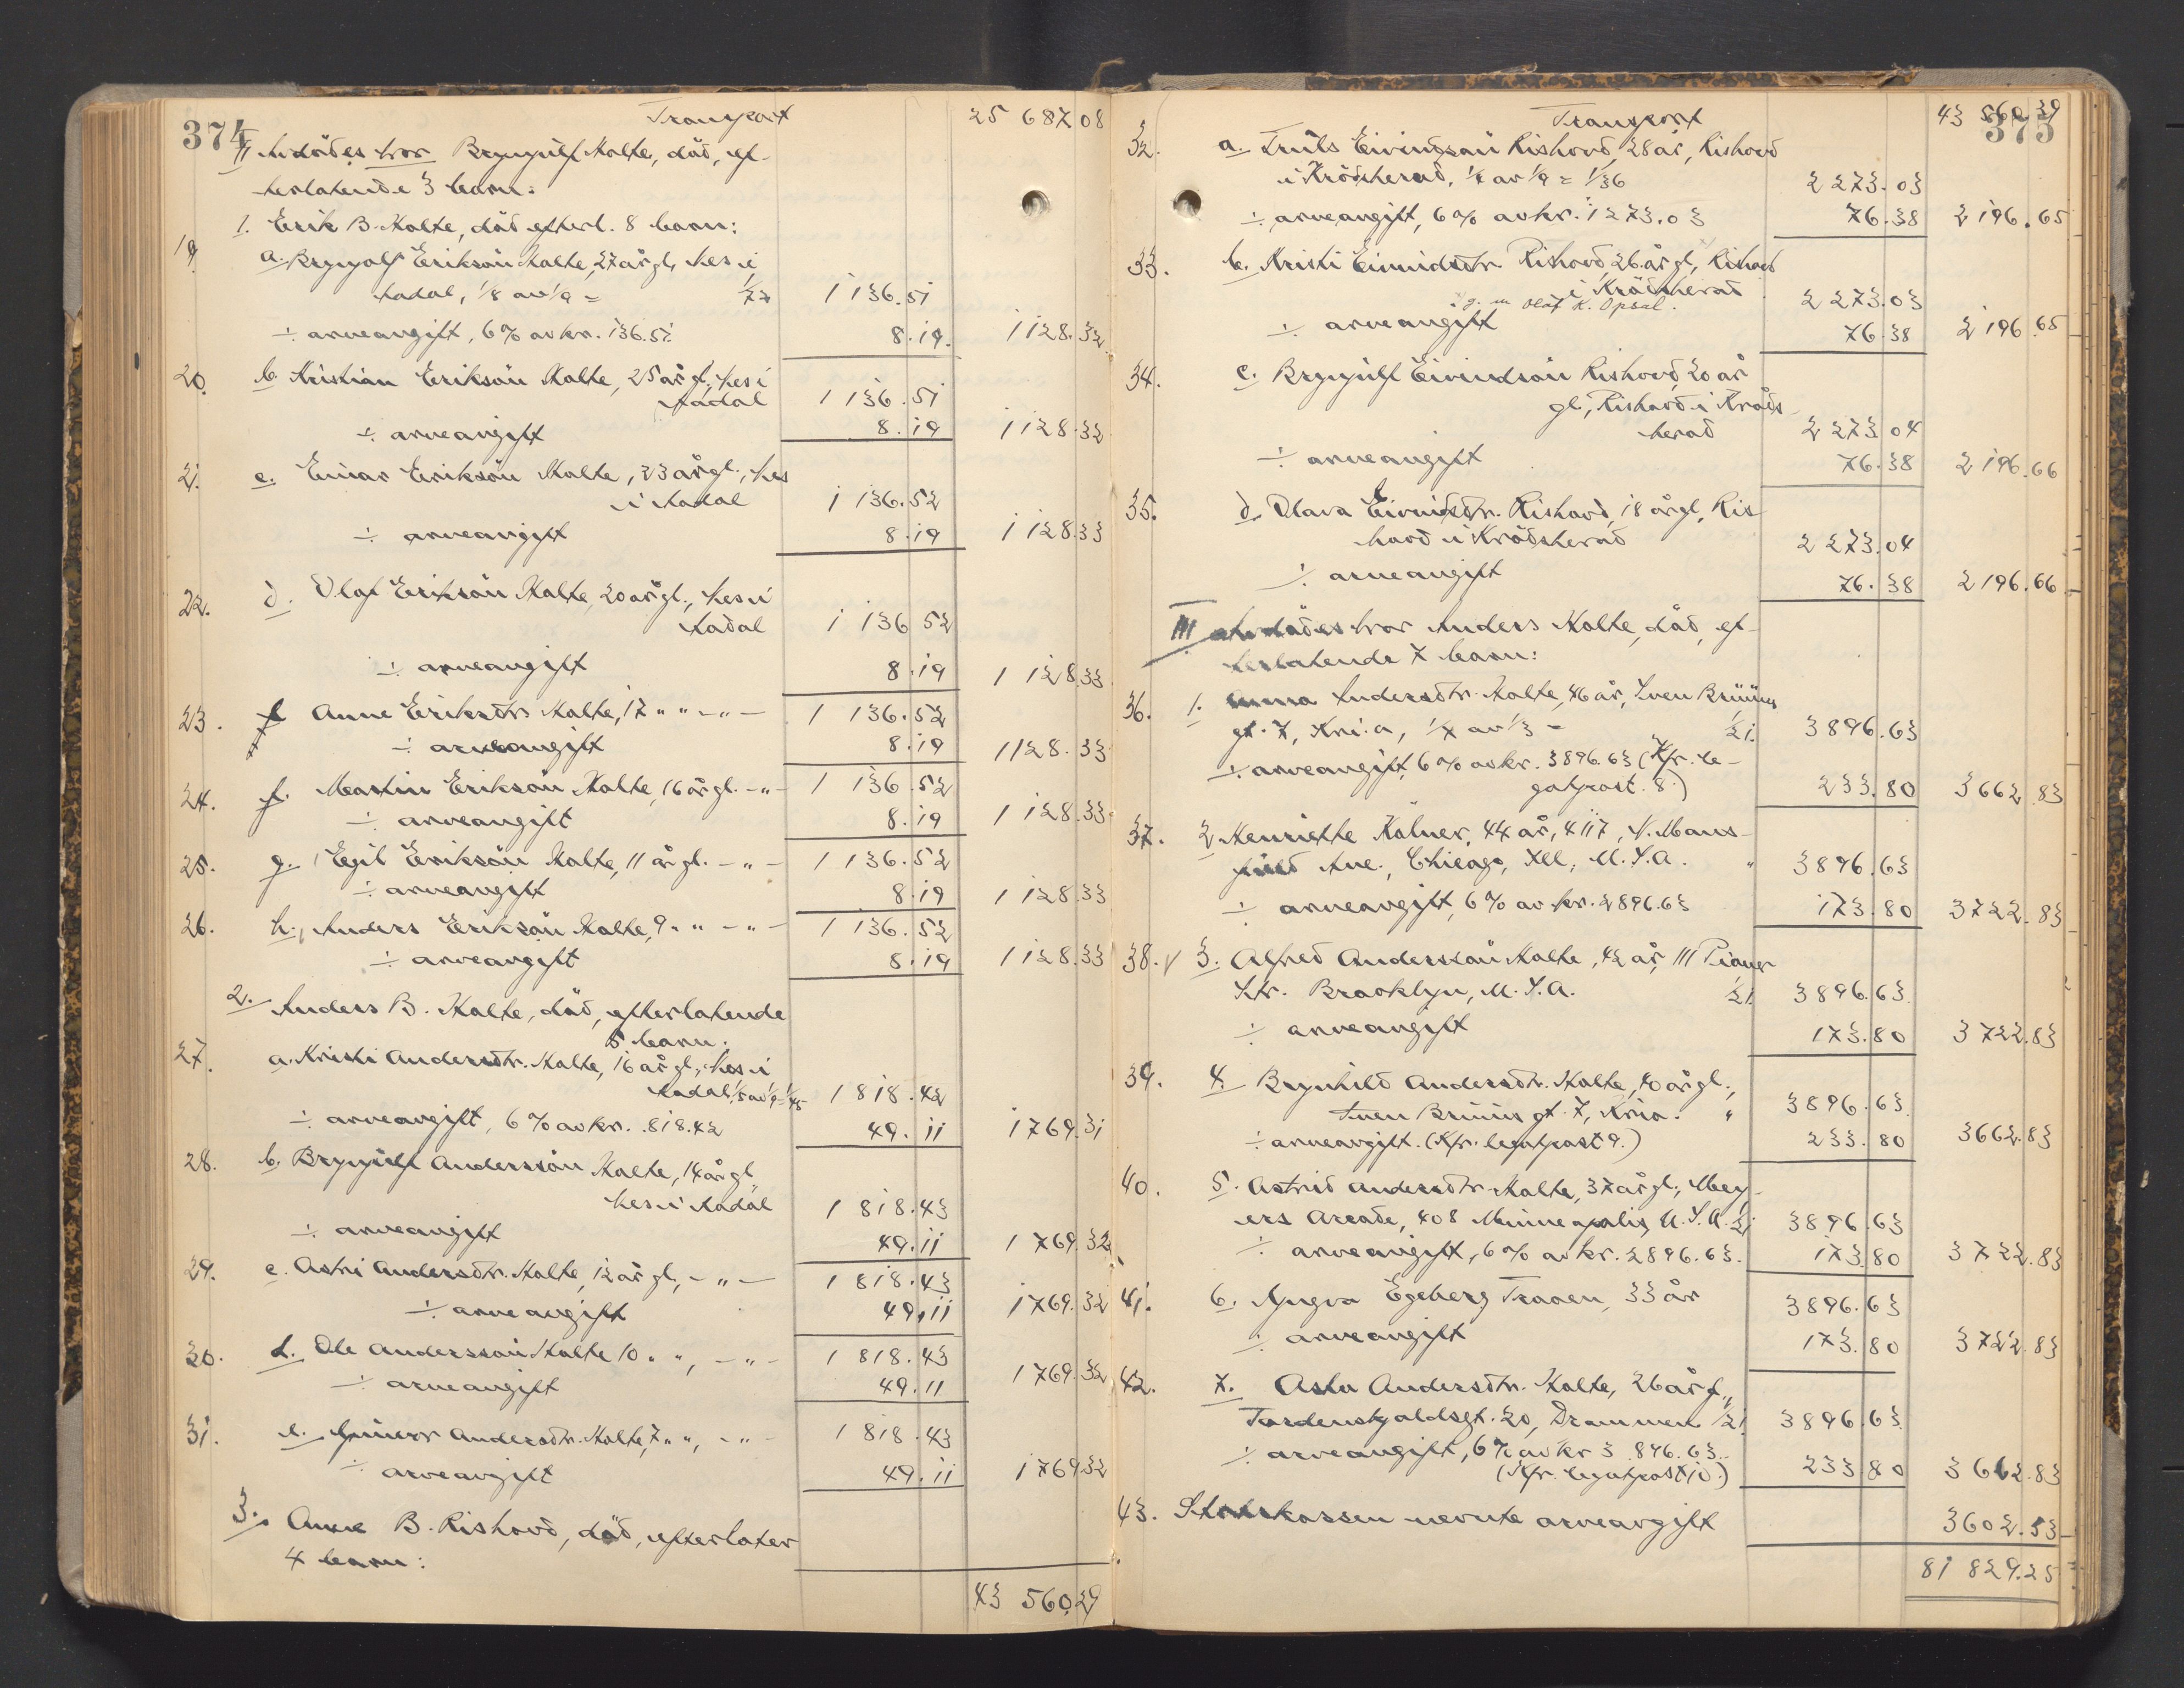 374
Transport 25 687 08
II Avdødes bror Brynjulf Kolte, død, ef-
terlatende 3 barn:
1. Erik B. Kolte, død efterl. 8 barn:
19. a. Brynjolf Eriksøn Kolte, 27 år gl., Nes i
Aadal, 1/8 av 1/9 = 1/72 1 136.51
÷ arveavgift, 6% av kr. 136.51 8.19. 1128.32
20. b. Kristian Eriksøn Kolte, 25 år gl., Nes i
Aadal 1 136.51
÷ arveavgift 8.19 1128.32
21. c. Einar Eriksøn Kolte, 23 år gl., Nes
i Aadal 1 136.52
÷ arveavgift 8.19 1 128.33
22. d. Olaf Eriksøn Kolte, 20 år gl., Nes i
Aadal 1 136 52
÷ arveavgift 8.19 1 128.33
23. Anne Eriksdtr. Kolte, 17 " " - " - 1 136.52
÷ arveavgift 8.19 1128.33
24. f. Martin Eriksøn Kolte, 16 år gl. - " - 1 136.52
÷ arveavgift 8.19 1 128.33
25. g. Egil Eriksøn Kolte, 11 år gl. - " - 1 136.52
÷ arveavgift 8.19 1 128.33
26. h. Anders Eriksøn Kolte, 9 " " - " - 1 136.52
÷ arveavgift 8.19 1 128.33
2. Anders B. Kolte, død, efterlatende
5 barn:
27. a. Kristi Andersdtr. Kolte, 16 år gl., Nes i
Aadal 1/5 av 1/9 = 1/45 1 818.42
÷ arveavgift, 6% av kr. 818.42 49.11 1769.31
28. b. Brynjulf Anderssøn Kolte, 14 år gl.,
Nes i Aadal 1 818.43
÷ arveavgift 49.11 1 769.32
29. c. Astri Andersdtr. Kolte, 12 år gl., - " - 1 818.43
÷ arveavgift 49.11 1769.32
30. d. Ole Anderssøn Kolte 10 " ", - " - 1 818.43
÷ arveavgift 49.11 1 769.32
31. e. Andersdtr. Kolte, 7 " ", - " - 1 818.43
÷ arveavgift 49.11 1769.32
3. Anne B. Rishovd, død, efterlater
4 barn:
43 560.29
375
Transport 43 560 29
32. a. Truls Eivindsøn Rishovd, 28 år, Rishovd
i Krødsherad, 1/4 av 1/9 = 1/36 2 273.03
÷ arveavgift, 6% av kr. 1273.03 76.38 2 196.65
33. b. Kristi Eivindsdtr. Rishovd, 26 år gl., Rishovd
i Krødsherad 2 273.03
g. m. Olaf K. Opsal.
÷ arveavgift 76.38 2 196.65
34. c. Brynjulf Eivindsøn Rishovd, 20 år
gl., Rishovd i Krøds-
herad 2 273.04
÷ arveavgift 76.38 2 196.66
35. d. Olava Eivindsdtr. Rishovd, 18 år gl., Ris-
hovd i Krødsherad 2 273.04
÷ arveavgift 76.38 2 196.66
III Avdødes bror Anders Kolte, død, ef-
terlatende 7 barn:
36. 1. Anna Andersdtr. Kolte, 46 år, Sven Bruuns
gt. 7, Kri.a, 1/7 av 1/3 = 1/21. 3896.63
÷ arveavgift, 6% av kr. 3896.63 (Kfr. le-
gatpost 8.) 233.80 3662.83
37. 2. Henriette Kolner, 44 år, 4117, N. Mans-
field Ave., Chicago, Ill, U.S.A. " 3896.63
÷ arveavgift, 6% av kr. 2896.63 173.80 3722.83
38. √ 3. Alfred Anderssøn Kolte, 42 år, 111 Pioner
Str. Brooklyn, U.S.A. 1/21 3896.63
÷ arveavgift 173.80 3722.83
39. 4. Brynhild Andersdtr. Kolte, 40 år gl.,
Sven Bruuns gt. 7, Kria. " 3896.63
÷ arveavgift. (Kfr. legatpost 9.) 233.80 3662.83
40. 5. Astrid Andersdtr. Kolte, 37 år gl., Mey-
ers Arcade, 408 Minneapolis, U.S.A. 1/21 3896.63
÷ arveavgift, 6% av kr. 2896.63. 173.80 3722.83
41. 6. Yngva Egeberg Traaen, 33 år 3896.63
÷ arveavgift 173.80 3722.83
42. 7. Asta Andersdtr. Kolte, 26 år g.,
Tordenskjoldsgt. 20, Drammen 1/21 3896.63
÷ arveavgift, 6% av kr 3 896.63.
(Kfr. legatpost 10.) 233.80 3662.83
43. Statskassen nevnte arveavgift 3602.53
81 829.25